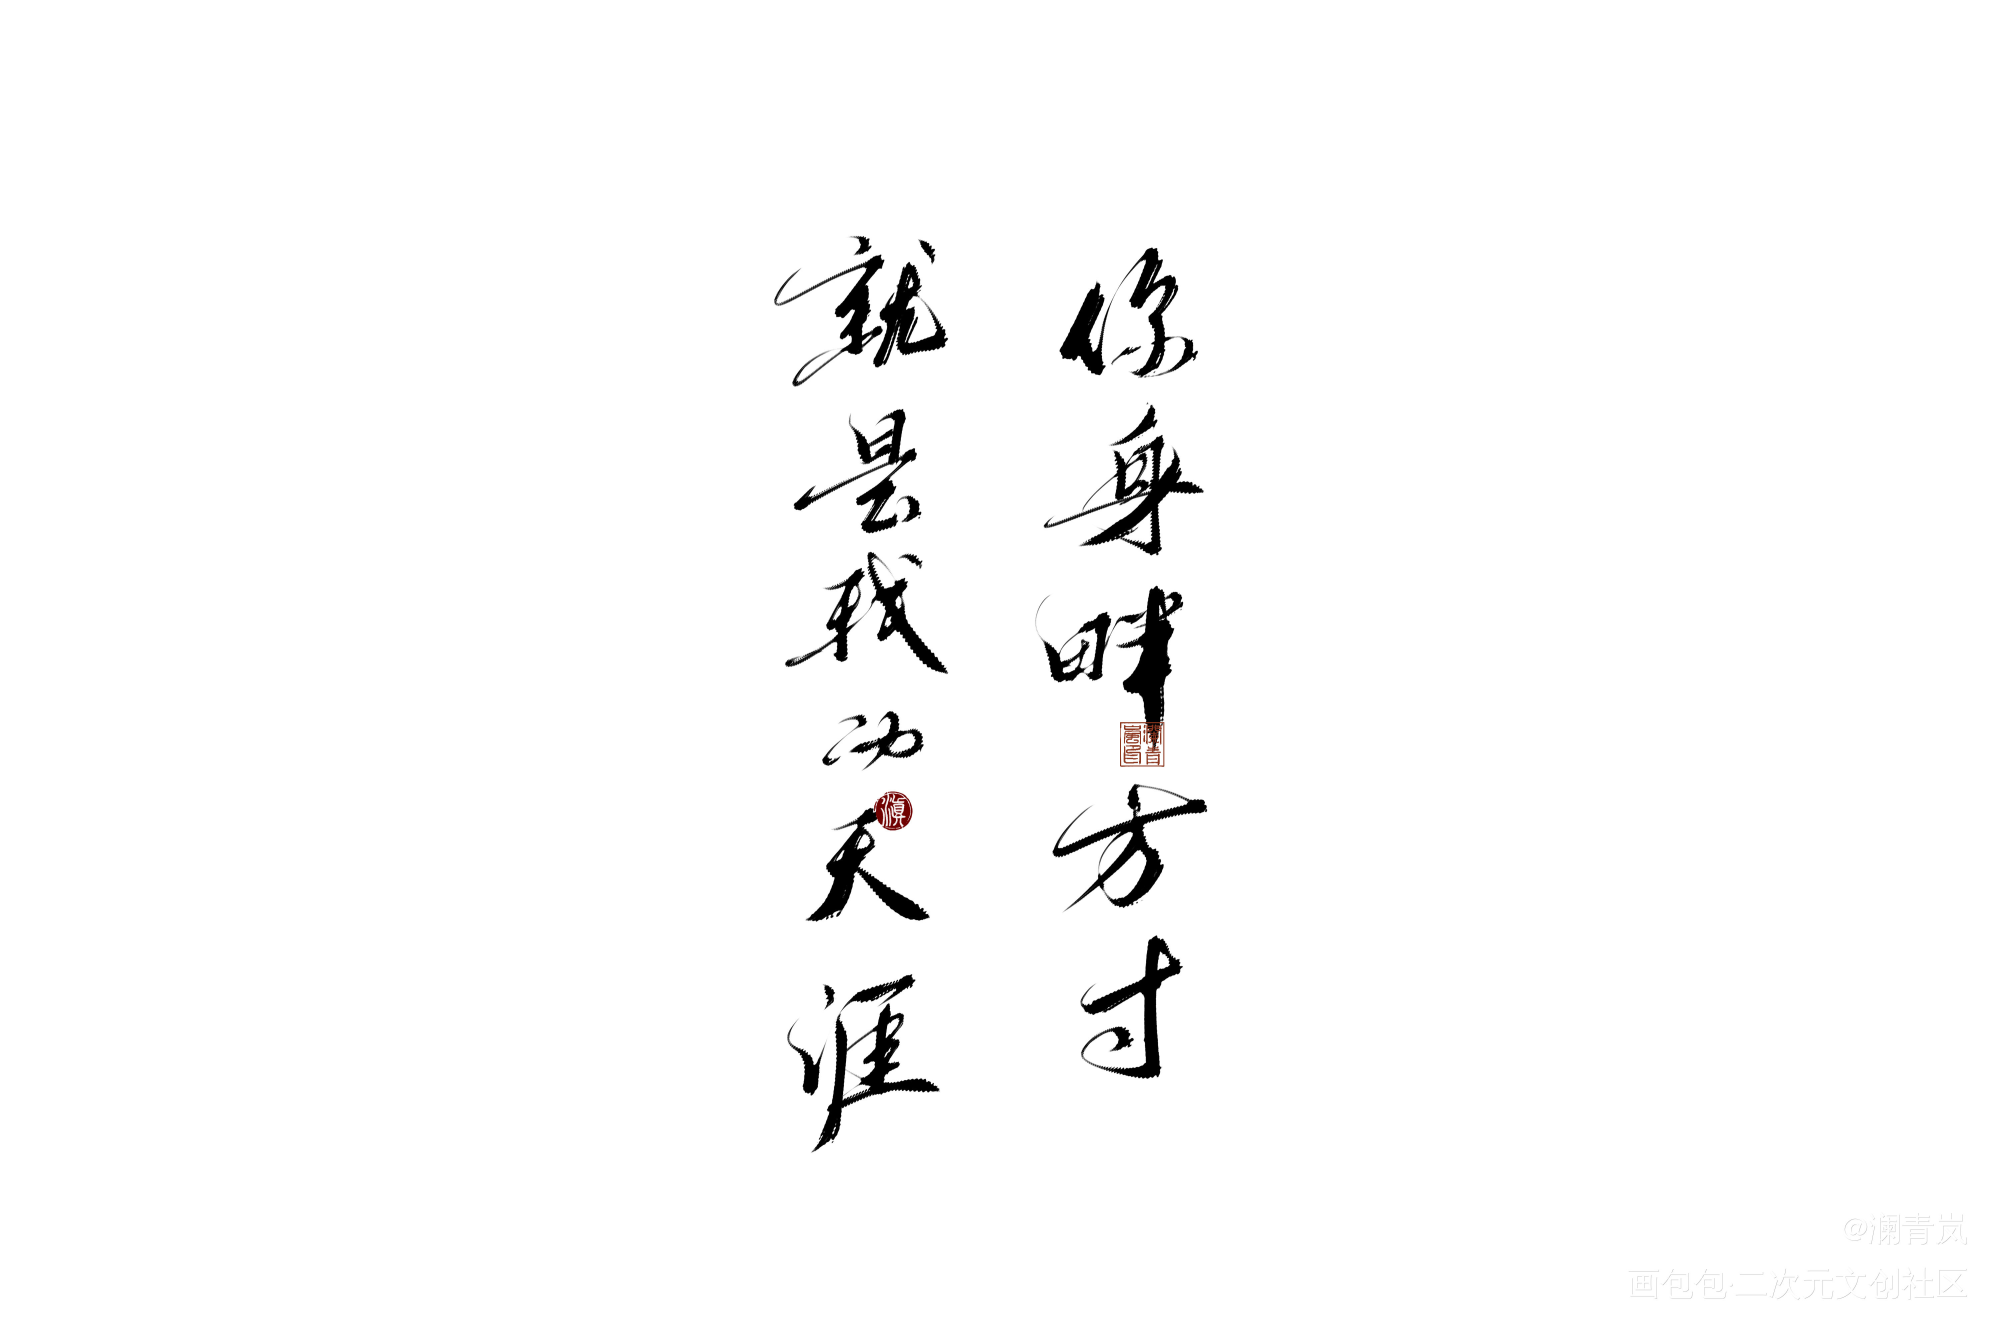 你身畔方寸
就是我的天涯
澜青岚印
滇
@澜青岚
画包包·二次元文创社区